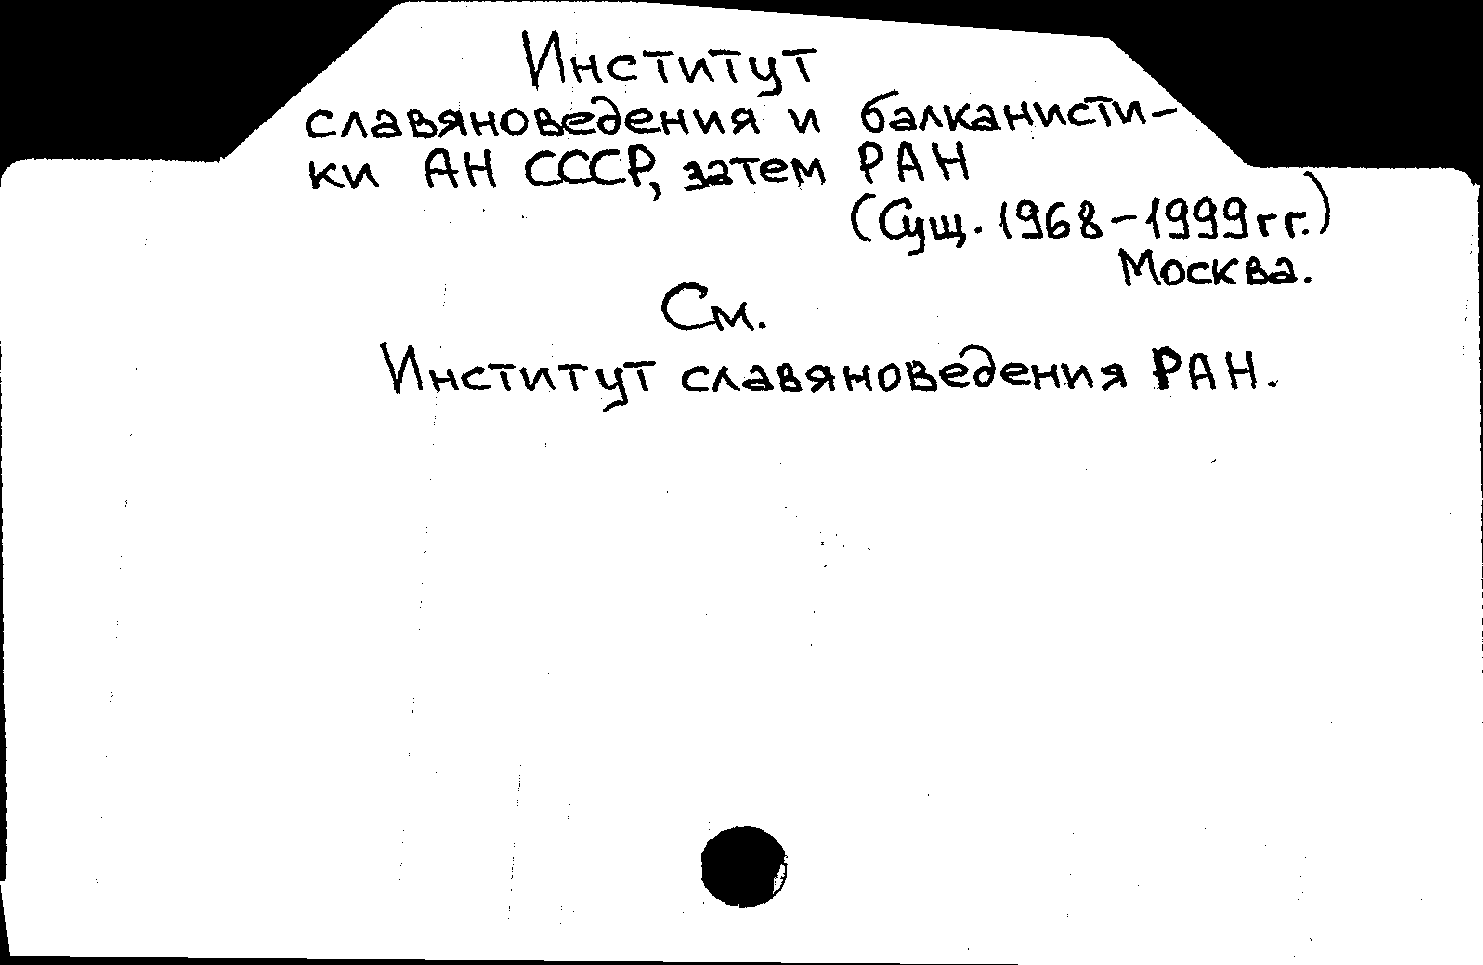 Институт
славяноведения и балканисти-
ки АН СССР, затем РАН
(Сущ. 1968-1999гг.)
Москва.
См.
Институт славяноведения РАН.